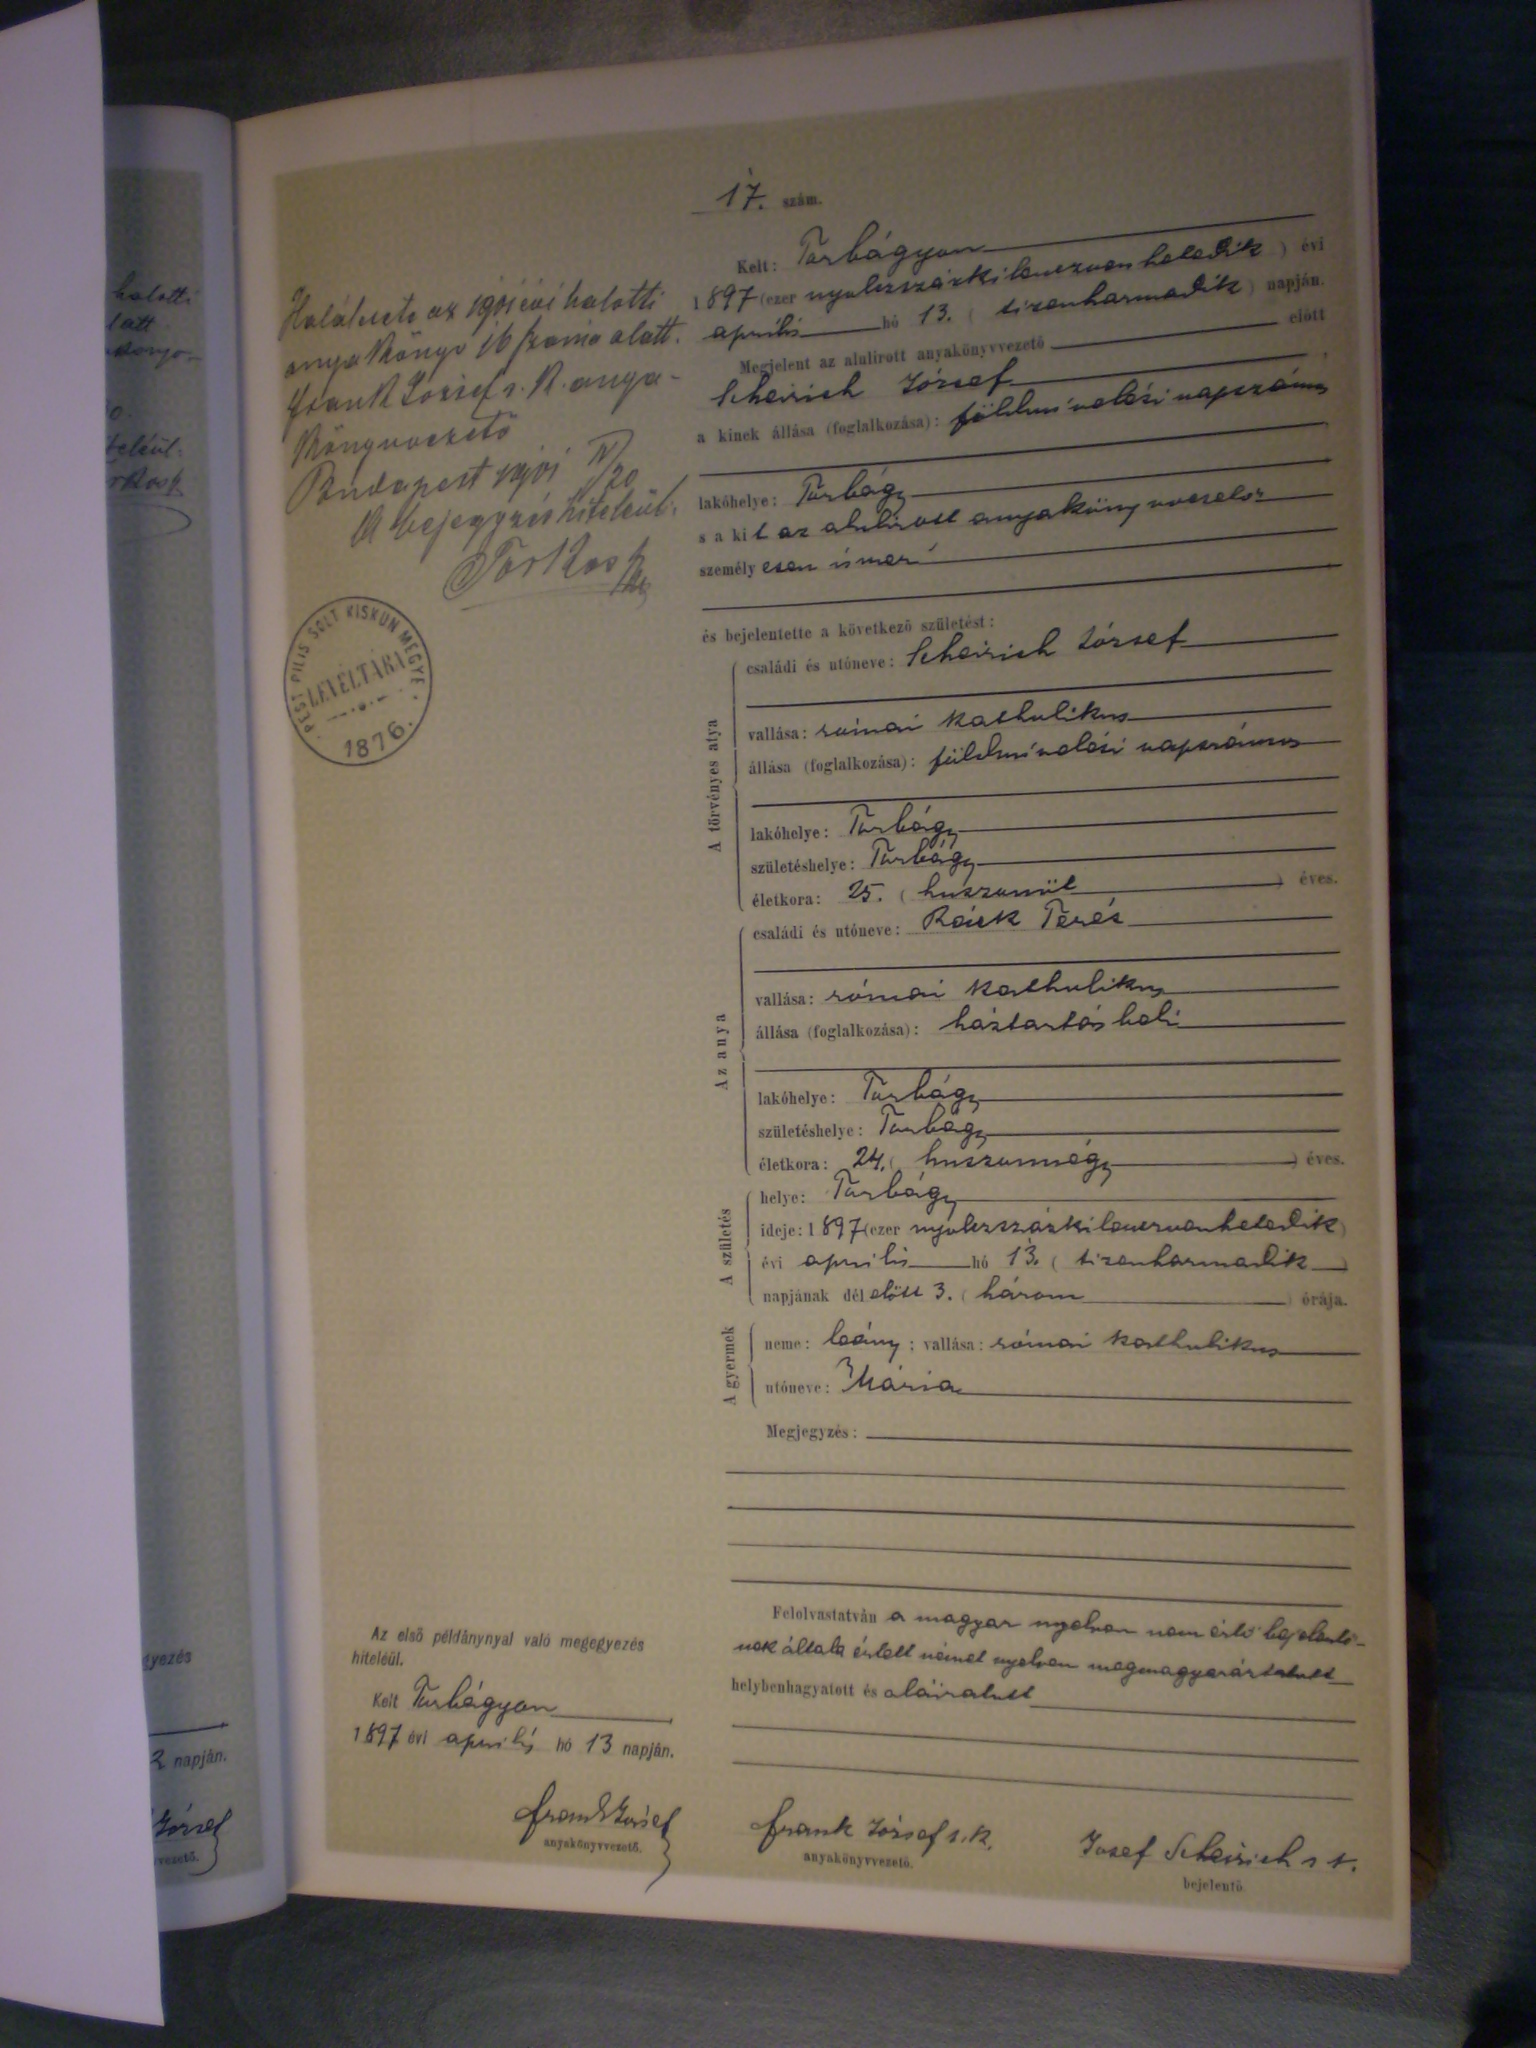 17. szám.
Kelt: Torbágyon
1897 (ezer nyolczszázkilenczvenhetedik) évi
április hó 13. (tizenharmadik) napján.
Megjelent az alulirott anyakönyvvezető előtt
Scheirich József
a kinek állása (foglalkozása): földmívelési napszámos
lakóhelye: Torbágy
s a kit az alulirott anyakönyvvezető
személyesen ismer
és bejelentette a következő születést:
A törvényes atya
családi és utóneve: Scheirich József
vallása: római katholikus
állása (foglalkozása): földmívelési napszámos
lakóhelye: Torbágy
születéshelye: Torbágy
életkora: 25. (huszonöt) éves.
Az anya
családi és utóneve: Ráck Teréz
vallása: római katholikus
állása (foglalkozása): háztartásbeli
lakóhelye: Torbágy
születéshelye: Torbágy
életkora: 24. (huszonnégy) éves.
A születés
helye: Torbágy
ideje: 1897 (ezer nyolczszázkilenczvenhetedik)
évi április hó 13. (tizenharmadik)
napjának délelőtt 3. (három) órája.
A gyermek
neme: leány; vallása: római katholikus
utóneve: Mária
Megjegyzés:
Felolvastatván a magyar nyelven nem értő bejelentő-
nek általa értett német nyelven megmagyaráztatott
helybenhagyatott és aláiratott
Frank József s. k.
anyakönyvvezető.
Josef Scheirich s. k.
bejelentő.
Halálesete az 1901 évi halotti
anyakönyv 16 száma alatt.
Frank József s. k. anya-
könyvvezető
Budapest 1901 IV/20
A bejegyzés hiteléül:
PEST PILIS SOLT KISKUN MEGYE
LEVÉLTÁRA
1876.
Az első példánynyal való megegyezés
hiteléül.
Kelt Torbágyon
1897 évi április hó 13 napján.
Frank József
anyakönyvvezető.
halotti
alatt
teleül:
gyezés
2 napján.
József
vezető.